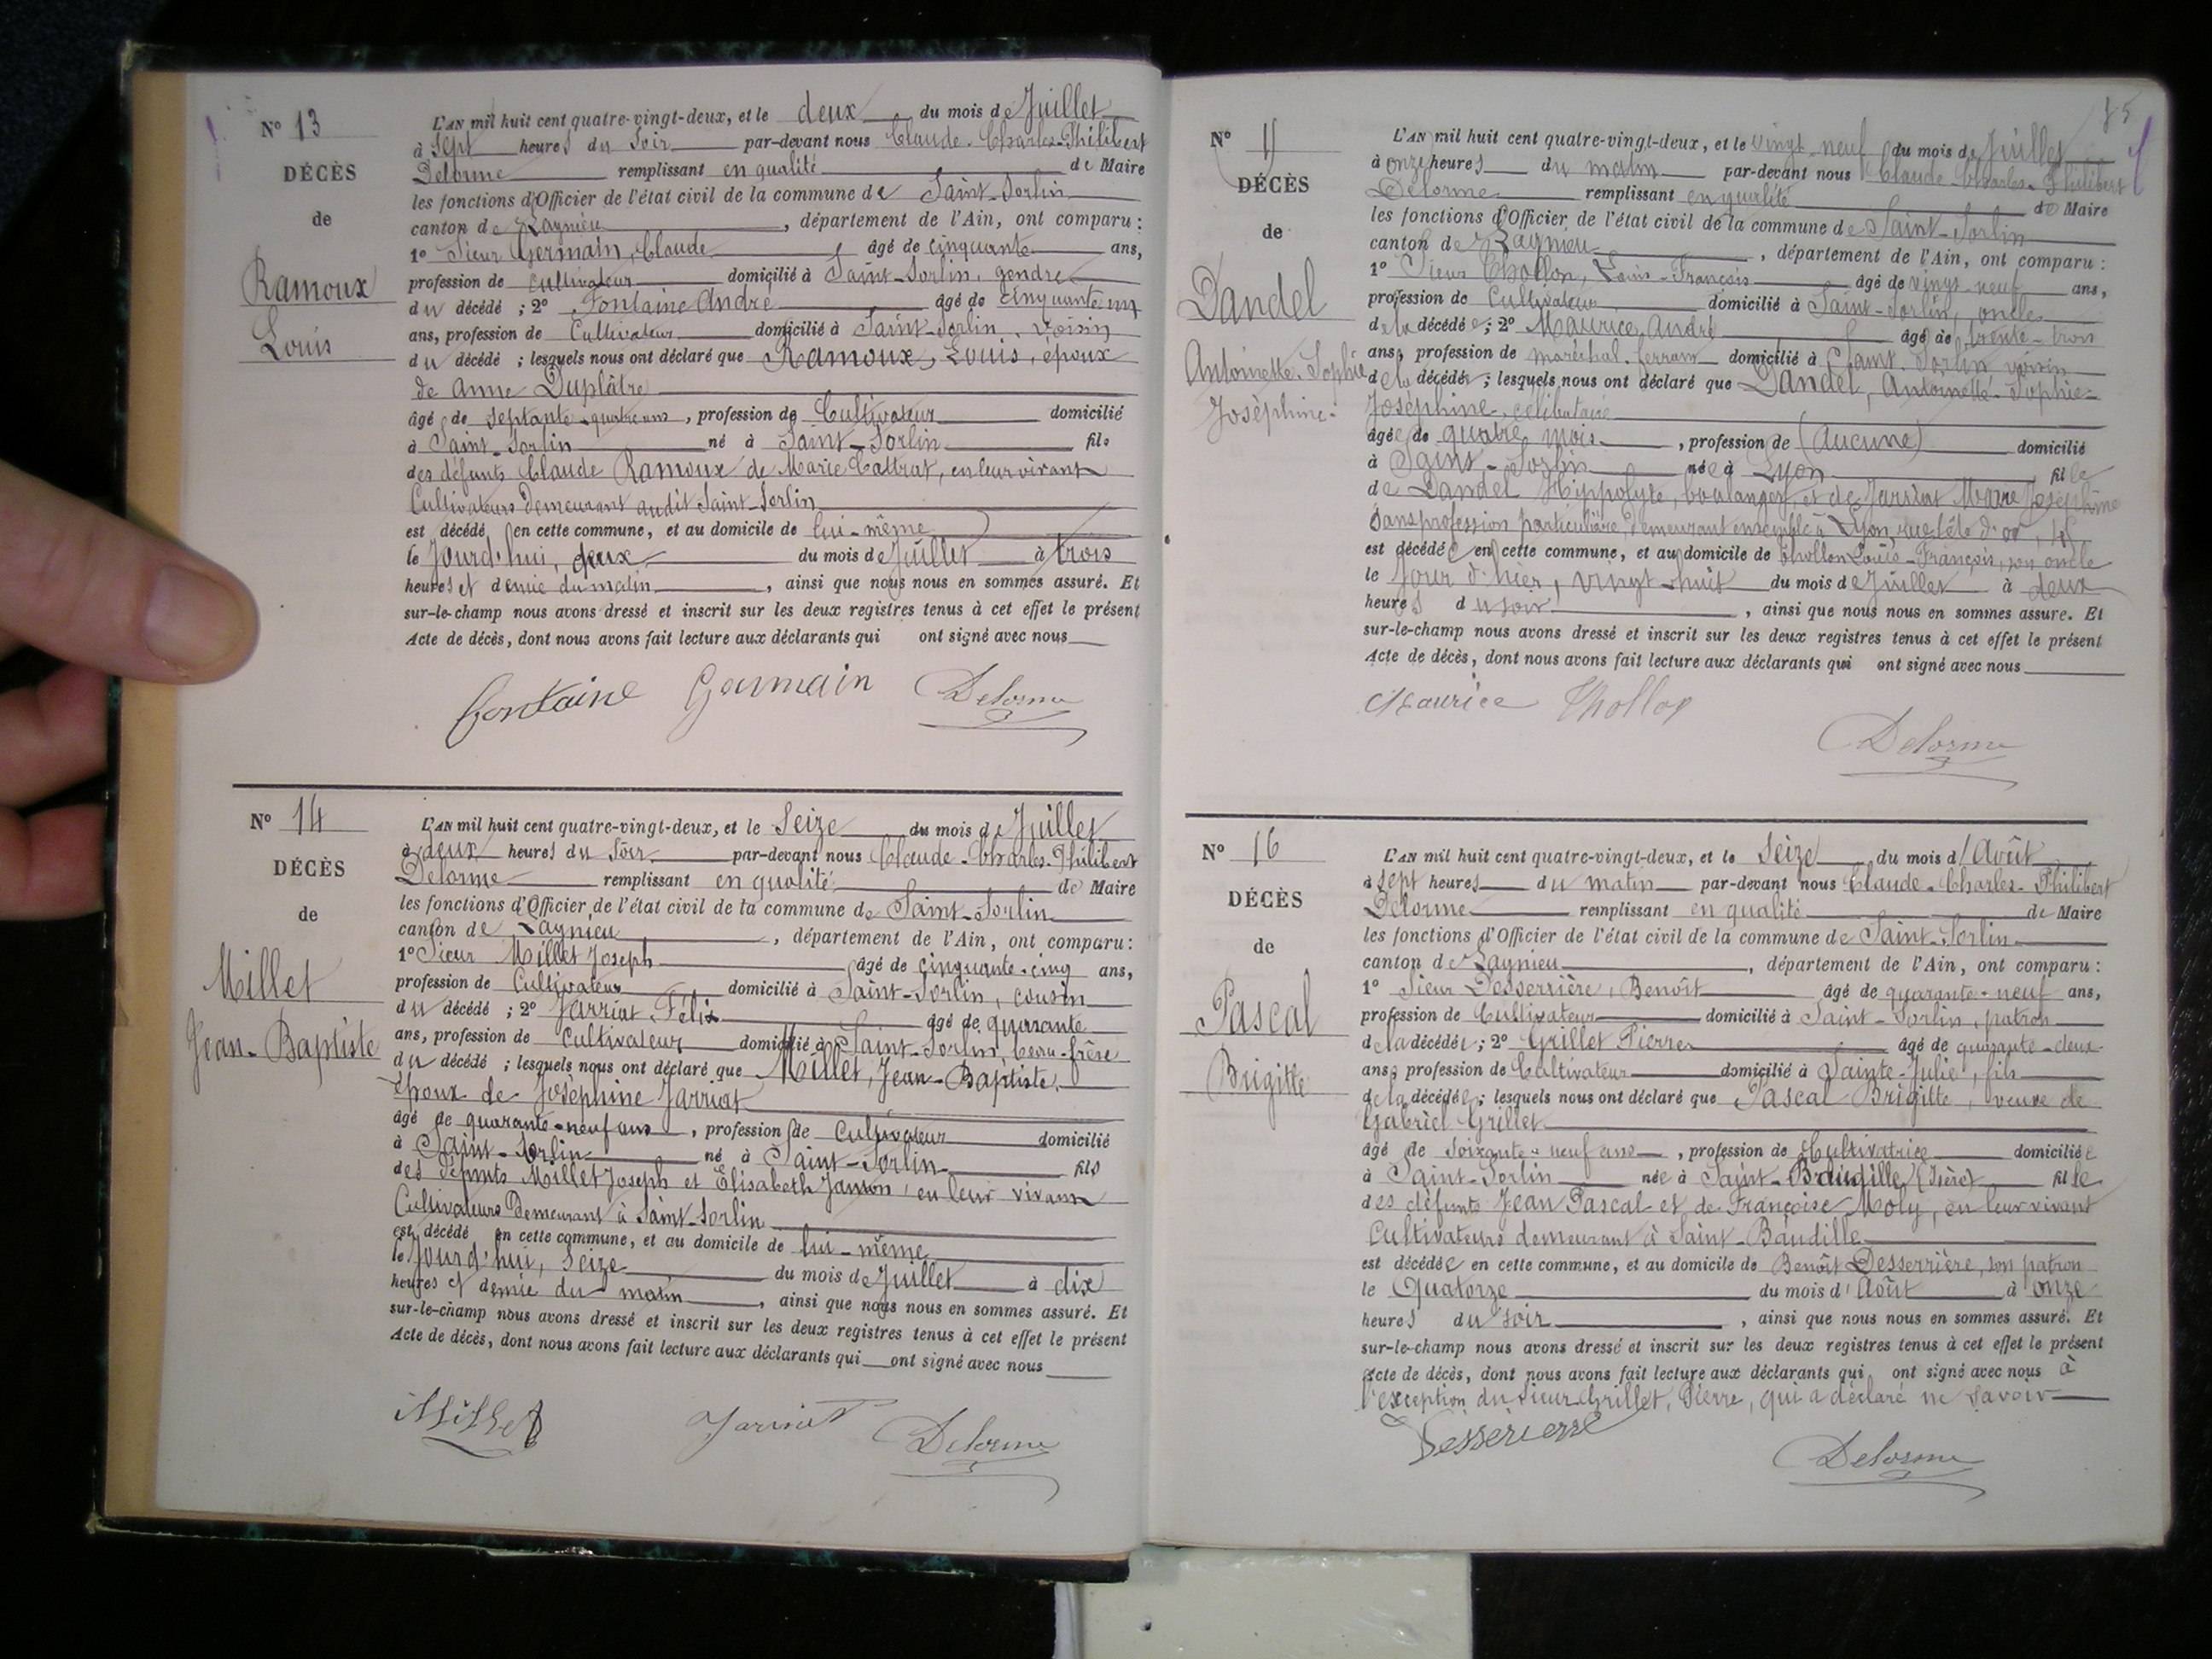 N° 13
DÉCÈS
de
Ramoux
Louis
L'AN mil huit cent quatre-vingt-deux, et le deux du mois de Juillet
à sept heures du soir par-devant nous Claude-Charles-Philibert
Delorme remplissant en qualité de Maire
les fonctions d'Officier de l'état civil de la commune de Saint-Sorlin
canton de Lagnieu, département de l'Ain, ont comparu :
1° Sieur Germain, Claude âgé de cinquante ans,
profession de cultivateur domicilié à Saint-Sorlin, gendre
du décédé ; 2° Fontaine André âgé de cinquante un
ans, profession de Cultivateur domicilié à Saint-Sorlin, voisin
du décédé ; lesquels nous ont déclaré que Ramoux, Louis, époux
de Anne Duplâtre
âgé de septante-quatre ans, profession de Cultivateur domicilié
à Saint-Sorlin né à Saint-Sorlin fils
des défunts Claude Ramoux de Marie Cattrat, en leur vivant
Cultivateurs demeurant audit Saint-Sorlin
est décédé en cette commune, et au domicile de lui-même
le Jourd'hui, deux du mois de Juillet à trois
heures et demie du matin, ainsi que nous nous en sommes assuré. Et
sur-le-champ nous avons dressé et inscrit sur les deux registres tenus à cet effet le présent
Acte de décès, dont nous avons fait lecture aux déclarants qui ont signé avec nous
Fontaine Germain Delorme
N° 14
DÉCÈS
de
Millet
Jean-Baptiste
L'AN mil huit cent quatre-vingt-deux, et le Seize du mois de Juillet
à deux heures du Soir par-devant nous Claude-Charles-Philibert
Delorme remplissant en qualité de Maire
les fonctions d'Officier de l'état civil de la commune de Saint-Sorlin
canton de Lagnieu, département de l'Ain, ont comparu :
1° Sieur Millet Joseph âgé de cinquante-cinq ans,
profession de Cultivateur domicilié à Saint-Sorlin, cousin
du décédé ; 2° Jarriat, Félix âgé de quarante
ans, profession de Cultivateur domicilié à Saint-Sorlin, beau-frère
du décédé ; lesquels nous ont déclaré que Millet, Jean-Baptiste,
époux de Joséphine Jarriat
âgé de quarante-neuf ans, profession de Cultivateur domicilié
à Saint-Sorlin né à Saint-Sorlin fils
des défunts Millet Joseph et Elisabeth, en leur vivant
Cultivateurs demeurant à Saint-Sorlin
est décédé en cette commune, et au domicile de lui-même
le Jourd'hui, Seize du mois de Juillet à dix
heures et demie du matin, ainsi que nous nous en sommes assuré. Et
sur-le-champ nous avons dressé et inscrit sur les deux registres tenus à cet effet le présent
Acte de décès, dont nous avons fait lecture aux déclarants qui ont signé avec nous
Millet Jarriat Delorme
N°
DÉCÈS
de
Dandel
Antoinette-Sophie
Joséphine
L'AN mil huit cent quatre-vingt-deux, et le vingt-neuf du mois de Juillet
à onze heures du matin par-devant nous Claude-Charles-Philibert
Delorme remplissant en qualité de Maire
les fonctions d'Officier de l'état civil de la commune de Saint-Sorlin
canton de Lagnieu, département de l'Ain, ont comparu :
1° Sieur Chollon, Louis-François âgé de vingt-neuf ans,
profession de Cultivateur domicilié à Saint-Sorlin, oncle
de la décédée ; 2° Maurice, André âgé de trente-trois
ans, profession de maréchal ferrant domicilié à Saint-Sorlin voisin
de la décédée ; lesquels nous ont déclaré que Dandel, Antoinette-Sophie-
Joséphine, célibataire
âgée de quatre mois, profession de (aucune) domicilié
à Saint-Sorlin née à Lyon fille
de Dandel Hippolyte, boulanger, et de Jarriat Marie Joséphine
sans profession particulière, demeurant ensemble à Lyon, rue tête d'or,
est décédée en cette commune, et au domicile de Chollon Louis-François, son oncle
le jour d'hier, vingt-huit du mois de Juillet à deux
heures du soir, ainsi que nous nous en sommes assuré. Et
sur-le-champ nous avons dressé et inscrit sur les deux registres tenus à cet effet le présent
Acte de décès, dont nous avons fait lecture aux déclarants qui ont signé avec nous
Maurice Delorme
N° 16
DÉCÈS
de
Pascal
Brigitte
L'AN mil huit cent quatre-vingt-deux, et le Seize du mois d'Août
à sept heures du matin par-devant nous Claude-Charles-Philibert
Delorme remplissant en qualité de Maire
les fonctions d'Officier de l'état civil de la commune de Saint-Sorlin
canton de Lagnieu, département de l'Ain, ont comparu :
1° Sieur Desserrière, Benoît âgé de quarante-neuf ans,
profession de Cultivateur domicilié à Saint-Sorlin, patron
de la décédée ; 2° Grillet Pierre âgé de quarante-deux
ans, profession de Cultivateur domicilié à Sainte-Julie, fils
de la décédée ; lesquels nous ont déclaré que Pascal Brigitte, veuve de
Gabriel Grillet
âgé de soixante-neuf ans, profession de Cultivatrice domiciliée
à Saint-Sorlin née à Saint-Baudille (Isère) fille
des défunts Jean Pascal et de Françoise Moly, en leur vivant
Cultivateurs demeurant à Saint-Baudille
est décédée en cette commune, et au domicile de Benoît Desserrière, son patron
le Quatorze du mois d'Août à onze
heures du soir, ainsi que nous nous en sommes assuré. Et
sur-le-champ nous avons dressé et inscrit sur les deux registres tenus à cet effet le présent
Acte de décès, dont nous avons fait lecture aux déclarants qui ont signé avec nous à
l'exception du sieur Grillet, Pierre, qui a déclaré ne savoir
Desserierre Delorme